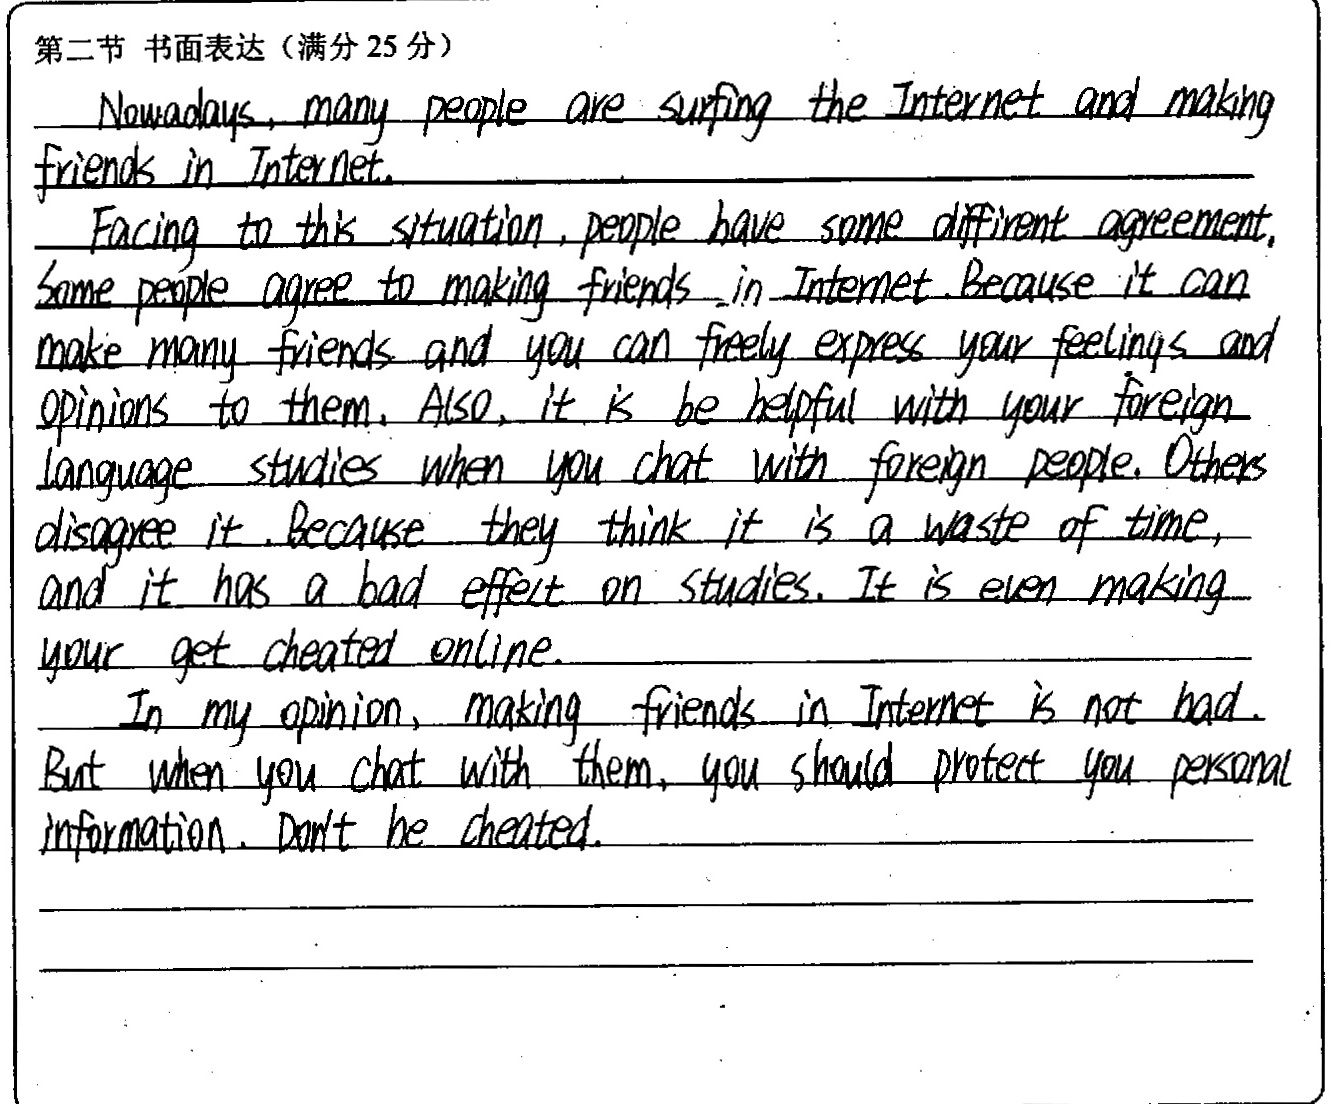 第二节 书面表达（满分 25 分）
Nowadays, many people are surfing the Internet and making
friends in Internet.
Facing to this situation, people have some diffirent agreement.
Some people agree to making friends in Internet. Because it can
make many friends and you can freely express your feelings and
opinions to them. Also, it is be helpful with your foreign
language studies when you chat with foreign people. Others
disagree it. Because they think it is a waste of time,
and it has a bad effect on studies. It is even making
your get cheated online.
In my opinion, making friends in Internet is not bad.
But when you chat with them, you should protect you personal
information. Don't be cheated.